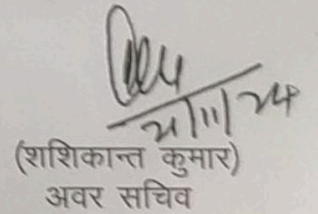 21/11/24
(शशिकान्त कुमार)
अवर सचिव